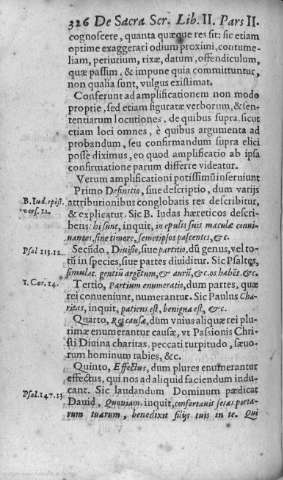 326 De Sacra Scr. Lib. II. Pars II.
cognoscere, quanta quæque res sit: sic etiam
optime exaggerari odium proximi, contume-
liam, periurium, rixæ, datum, offendiculum,
quæ passim, & impune quia committuntur,
non qualia sunt, vulgus existimat.
Conferunt ad amplificationem non modo
proprie, sed etiam figuratæ verborum, & sen-
tentiarum locutiones, de quibus supra: sicut
etiam loci omnes, è quibus argumenta ad
probandum, seu confirmandum supra elici
posse diximus, eo quod amplificatio ab ipsa
confirmatione parum differre videatur.
Verum amplificationi potissimũ inseruiunt
Primo Definitio, siue descriptio, dum varijs
B. Iud. epist.
vers. 12.
attributionibus conglobatis res describitur,
& explicatur. Sic B. Iudas hæreticos descri-
bens: hi sunt, inquit, in epulis suis maculæ conui-
uantes, sine timore, semetipsos pascentes, &c.
Psal 113. 12.
Secũdo, Diuisio, siue partitio, dũ genus, vel to-
tũ in species, siue partes diuiditur. Sic Psaltes,
simulac. gentiũ argẽtum, & aurũ, &c. os habẽt. &c.
1. Cor. 14.
Tertio, partium enumeratio, dum partes, quæ
rei conueniunt, numerantur. Sic Paulus Cha-
ritas, inquit, patiens est, benigna est, &c.
Quarto, Rei causæ, dum vnius aliquæ rei plu-
rimæ enumerantur causæ, vt Passionis Chri-
sti Diuina charitas, peccati turpitudo, sæuo-
rum hominum rabies, &c.
Quinto, Effectus, dum plures enumerantur
effectus, qui nos ad aliquid faciendum indu-
cant. Sic laudandum Dominum prædicat
Psal. 147. 13.
Dauid, Quoniam, inquit, confortauit seras porta-
rum tuarum, benedixit filijs tuis in te. Qui